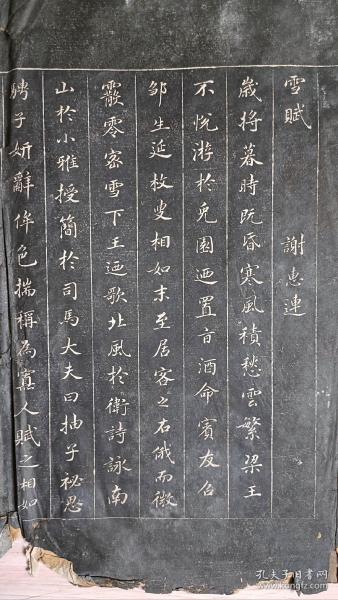 雪賦 謝惠連
歲將暮時既昏寒風積愁雲繁梁王
不悅游於兔園迺置旨酒命賓友召
鄒生延枚叟相如末至居客之右俄而微
霰零密雪下王迺歌北風於衛詩詠南
山於小雅授簡於司馬大夫曰抽子祕思
騁子妍辭侔色揣稱為寡人賦之相如
孔夫子旧书网